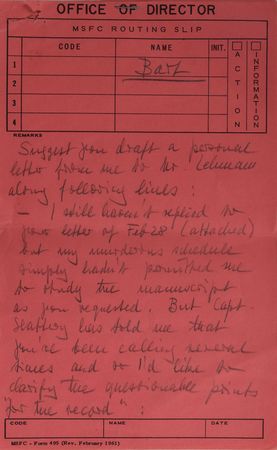 OFFICE OF DIRECTOR
MSFC ROUTING SLIP
CODE NAME INIT. ACTION INFORMATION
1 Bart
2
3
4
REMARKS
Suggest you draft a personal
letter from me to Mr. Lehman
along following lines:
– I still haven't replied to
your letter of Feb 28 (attached)
but my murderous schedule
simply hasn't permitted me
to study the manuscript
as you requested. But Capt.
has told me that
you've been calling several
times and so I'd like to
clarify the questionable points
"for the record":
CODE NAME DATE
MSFC - Form 495 (Rev. February 1961)